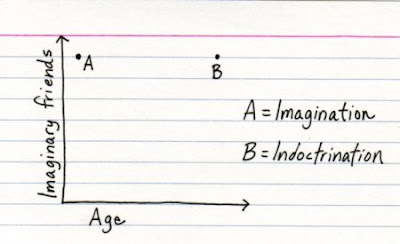 Imaginary friends
A
B
A = Imagination
B = Indoctrination
Age